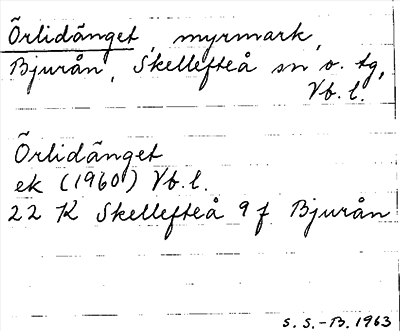 Örlidänget, myrmark,
Bjurån, Skellefteå sn o. tg,
Vb. l.
Örlidänget
ek (1960) Vb. l.
22 K Skellefteå 9 f Bjurån
S. S.-B. 1963